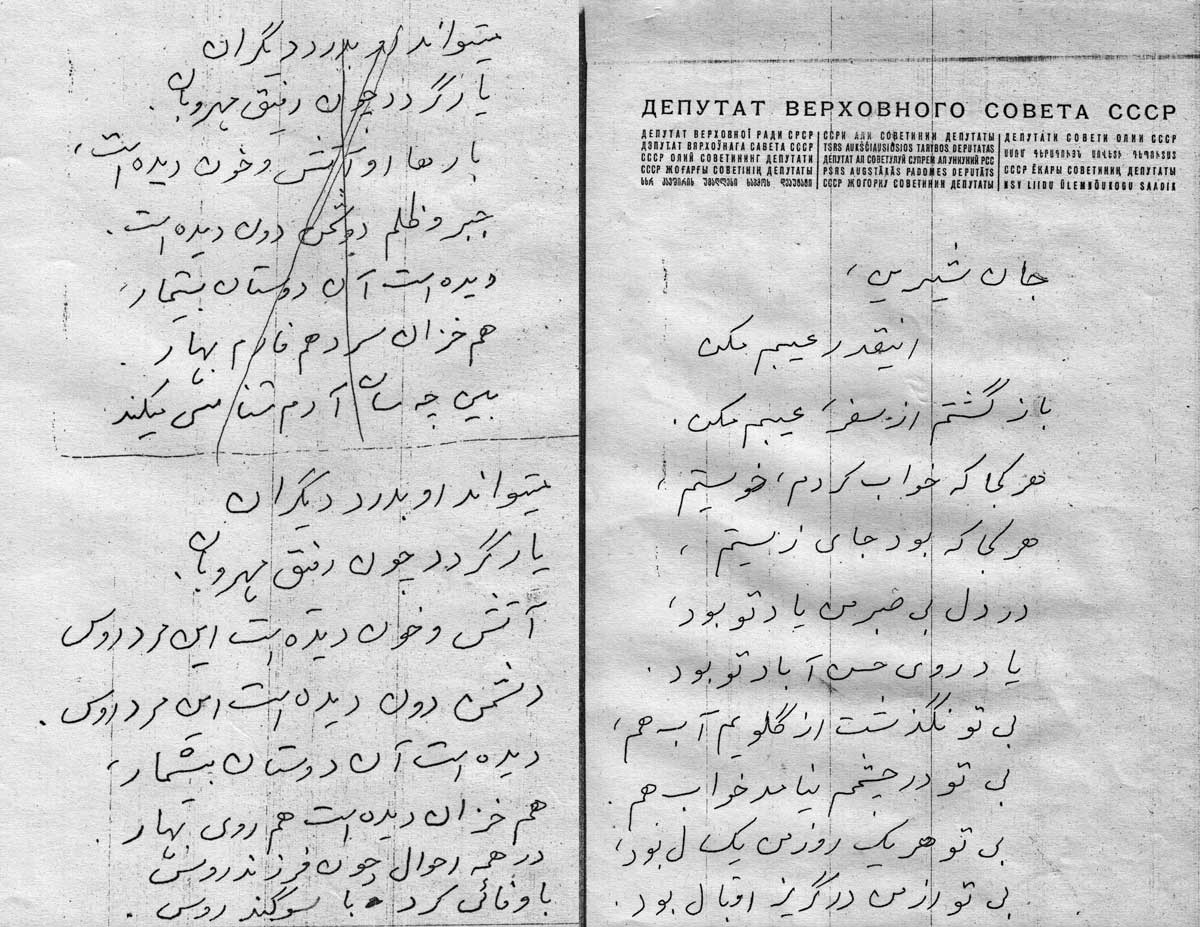 ДЕПУТАТ ВЕРХОВНОГО СОВЕТА СССР
ДЕПУТАТ ВЕРХОВНОЇ РАДИ СРСР
ДЭПУТАТ ВЯРХОЎНАГА САВЕТА СССР
СССР ОЛИЙ СОВЕТИНИНГ ДЕПУТАТИ
СССР ЖОҒАРҒЫ СОВЕТІНІҢ ДЕПУТАТЫ
სსრ კავშირის უმაღლესი საბჭოს დეპუტატი
ССРИ АЛИ СОВЕТИНИН ДЕПУТАТЫ
TSRS AUKŠČIAUSIOSIOS TARYBOS DEPUTATAS
ДЕПУТАТ АЛ СОВЕТУЛУЙ СУПРЕМ АЛ УНИУНИЙ РСС
PSRS AUGSTĀKĀS PADOMES DEPUTĀTS
СССР ЖОГОРКУ СОВЕТИНИН ДЕПУТАТЫ
ДЕПУТАТИ СОВЕТИ ОЛИИ СССР
ՍՍՌՄ ԳԵՐԱԳՈՒՅՆ ՍՈՎԵՏԻ ԴԵՊՈՒՏԱՏ
СССР ЁКАРЫ СОВЕТИНИҢ ДЕПУТАТЫ
NSV LIIDU ÜLEMNÕUKOGU SAADIK
جان شیرین،
اینقدر عیبم مکن
باز گشتم از سفر، عیبم مکن.
هر کجا که خواب کردم، خویستم،
هر کجا که بود جای زیستم،
در دل بی صبر من یاد تو بود،
یاد روی حسن آباد تو بود.
بی تو نگذشت از گلویم آب هم،
بی تو در چشمم نیامد خواب هم.
بی تو هر یک روز من یک سال بود،
بی تو راز من در گریز اقبال بود.
میتواند او بدرد دیگران
یار گردد چون رفیق مهروبان.
بارها او آتش و خون دیده است،
جبر و ظلم دشمن دون دیده است.
دیده است آن دوستان بیشمار،
هم خزان سرد هم فارم بهار.
ببین چه سان آدم شناسی میکند
میتواند او بدرد دیگران
یار گردد چون رفیق مهروبان.
آتش و خون دیده است این مرد روس
دشمن دون دیده است این مرد روس.
دیده است آن دوستان بیشمار،
هم خزان دیده است هم روی بهار.
در همه احوال چون فرزند روس
با وفائی کرد با سوگند روس.